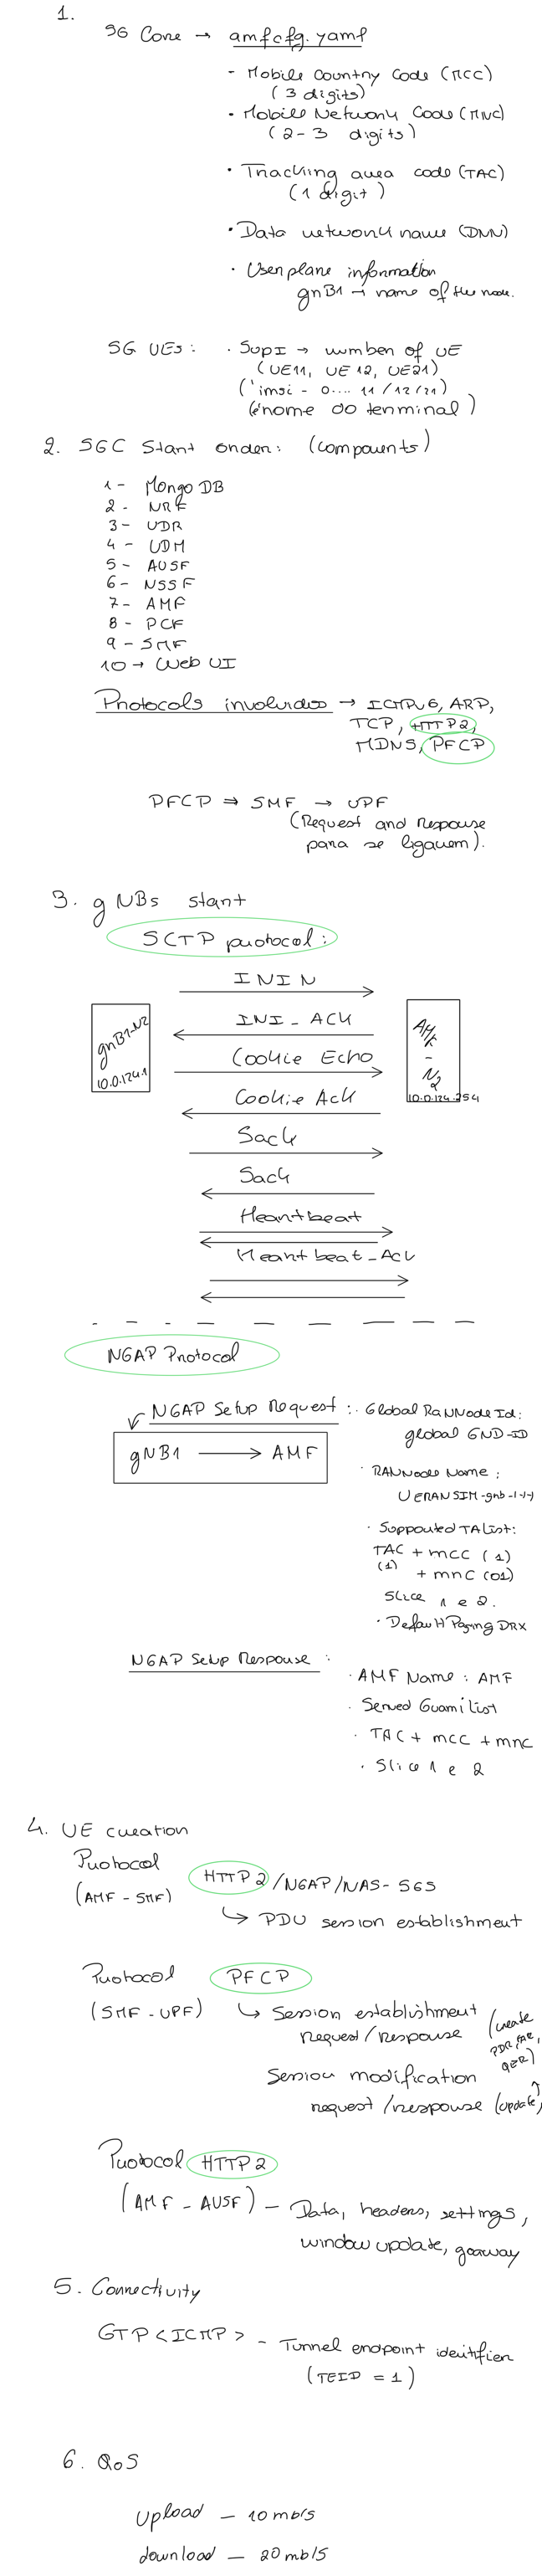 1.
5G Core → amfcfg.yaml
- Mobile Country Code (MCC)
(3 digits)
• Mobile Network Code (MNC)
(2-3 digits)
• Tracking area code (TAC)
(1 digit)
• Data network name (DNN)
• User plane information
gnB1 → name of the node.
5G UEs: • SupI → number of UE
(UE11, UE12, UE21)
('imsi - 0.... 11/12/21)
(é nome do terminal)
2. 5GC Start order: (compounts)
1 - Mongo DB
2 - NRF
3 - UDR
4 - UDM
5 - AUSF
6 - NSSF
7 - AMF
8 - PCF
9 - SMF
10 → Web UI
Protocols involvidos → ICMPV6, ARP,
TCP, HTTP2,
MDNS, PFCP
PFCP ⇒ SMF → UPF
(Request and response
para se ligarem).
3. gNBs start
SCTP protocol:
ININ
gnB1-N2
10.0.124.1
INI_ACK
AMF - N2
10.0.124.254
Cookie Echo
Cookie Ack
Sack
Sack
Heartbeat
Heartbeat_Ack
NGAP Protocol
NGAP Setup Request : • Global RaNNode Id:
global GND-ID
gNB1 → AMF
• RANNode Name:
UERANSIM-gnb-1-1-1
• Supported TAlist:
TAC + mcc (1)
(1) + mnc (01)
Slice 1 e 2.
• Default Paging DRX
NGAP Setup Response :
• AMF Name: AMF
• Served Guami List
• TAC + mcc + mnc
• Slice 1 e 2
4. UE creation
Protocol HTTP2 /NGAP/NAS-5GS
(AMF - SMF)
↳ PDU session establishment
Protocol PFCP
(SMF - UPF) ↳ Session establishment
request/response (create
PDR, FAR,
QER)
Session modification
request/response (update)
Protocol HTTP2
(AMF - AUSF) - Data, headers, settings,
window update, goaway
5. Connectivity
GTP <ICMP> - Tunnel endpoint identifier
(TEID = 1)
6. QoS
Upload - 10 mb/s
download - 20 mb/s